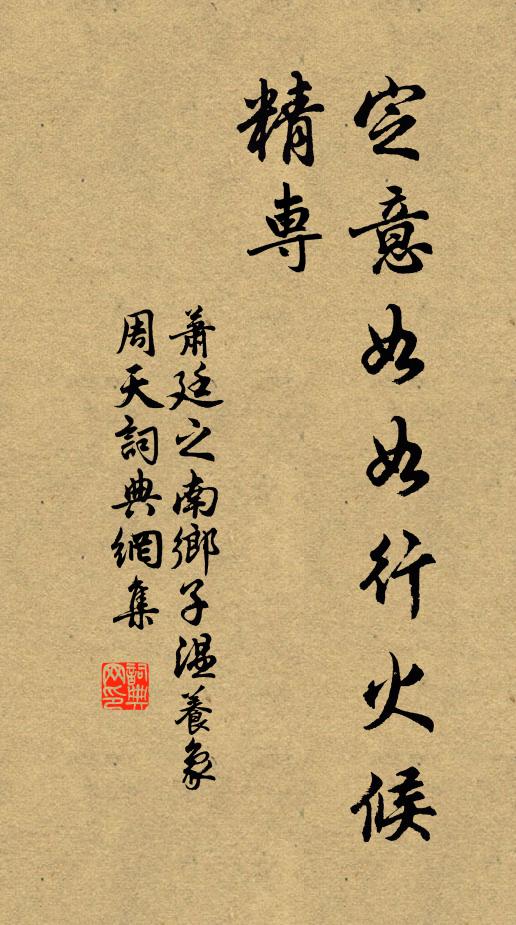 定意如如行火候
精專
蕭廷之南鄉子溫養象
周天詞典網集
詞典網印